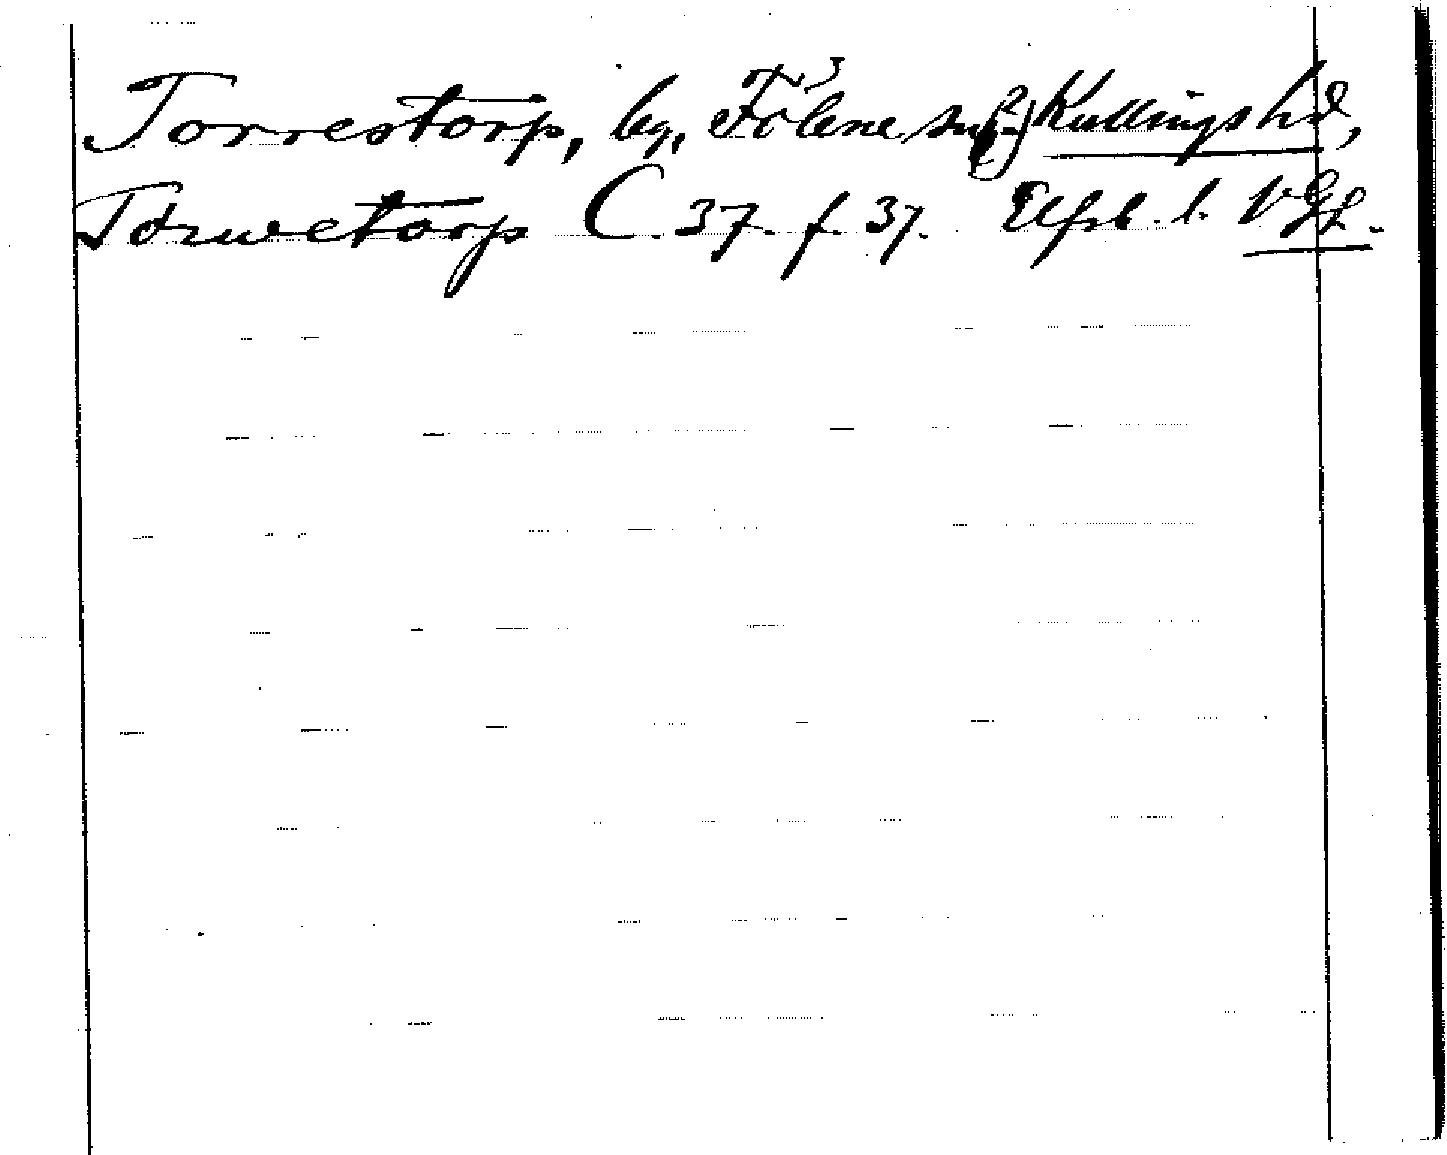 Torrestorp, by, Fölene sn(?) Kullings hd,
Torwetorp C. 37. f. 37. Elfsb. l. VGL.